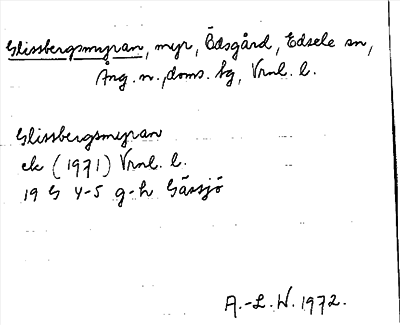 Glissbergsmyran, myr, Ödsgård, Edsele sn,
Ång. n., doms. bg, Vrnl. l.
Glissbergsmyran
ek (1971) Vrnl. l.
19 G 4-5 g-h Gåssjö
A.-L. W. 1972.